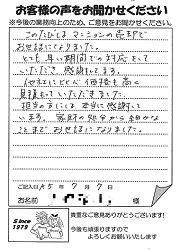 お客様の声をお聞かせください
※今後の業務向上のため、ご意見をお聞かせください※
このたびは マンションの売却で
お世話になりました。
とても早い期間での対応をして
いただき 感謝してます。
他社にくらべ価格も高く
見積もっていただきました。
担当の方には 本当に感謝して
います。 家財の処分から細かな
ことまで お世話になりました。
ご記入日 R5年 7月 7日
お名前
Since
1979
貴重なご意見ありがとうございます!
今後も頑張りますので
よろしくお願いいたします